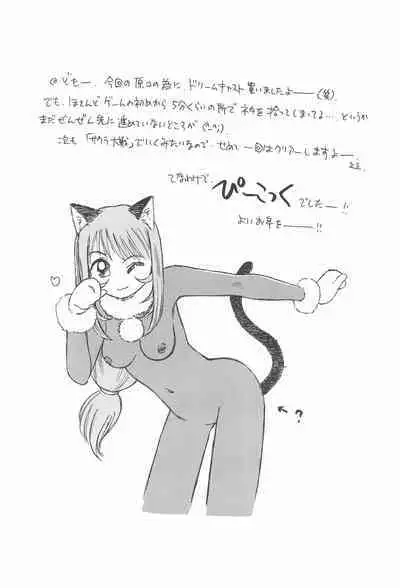 @ どもー. 今回の原コの為に, ドリームキャスト買いましたよ——(笑).
でも, ほとんどゲームの初めから 5分くらいの所で ネタを拾ってしまってよ…, というか
まだぜんぜん先に進めていないところが (^_^;)
次も 「サクラ大戦」でいくみたいなので. せめて一回はクリアーしますよー.
てなわけで,
ぴーこっく でした——!!
よいお年を———!!
← ?